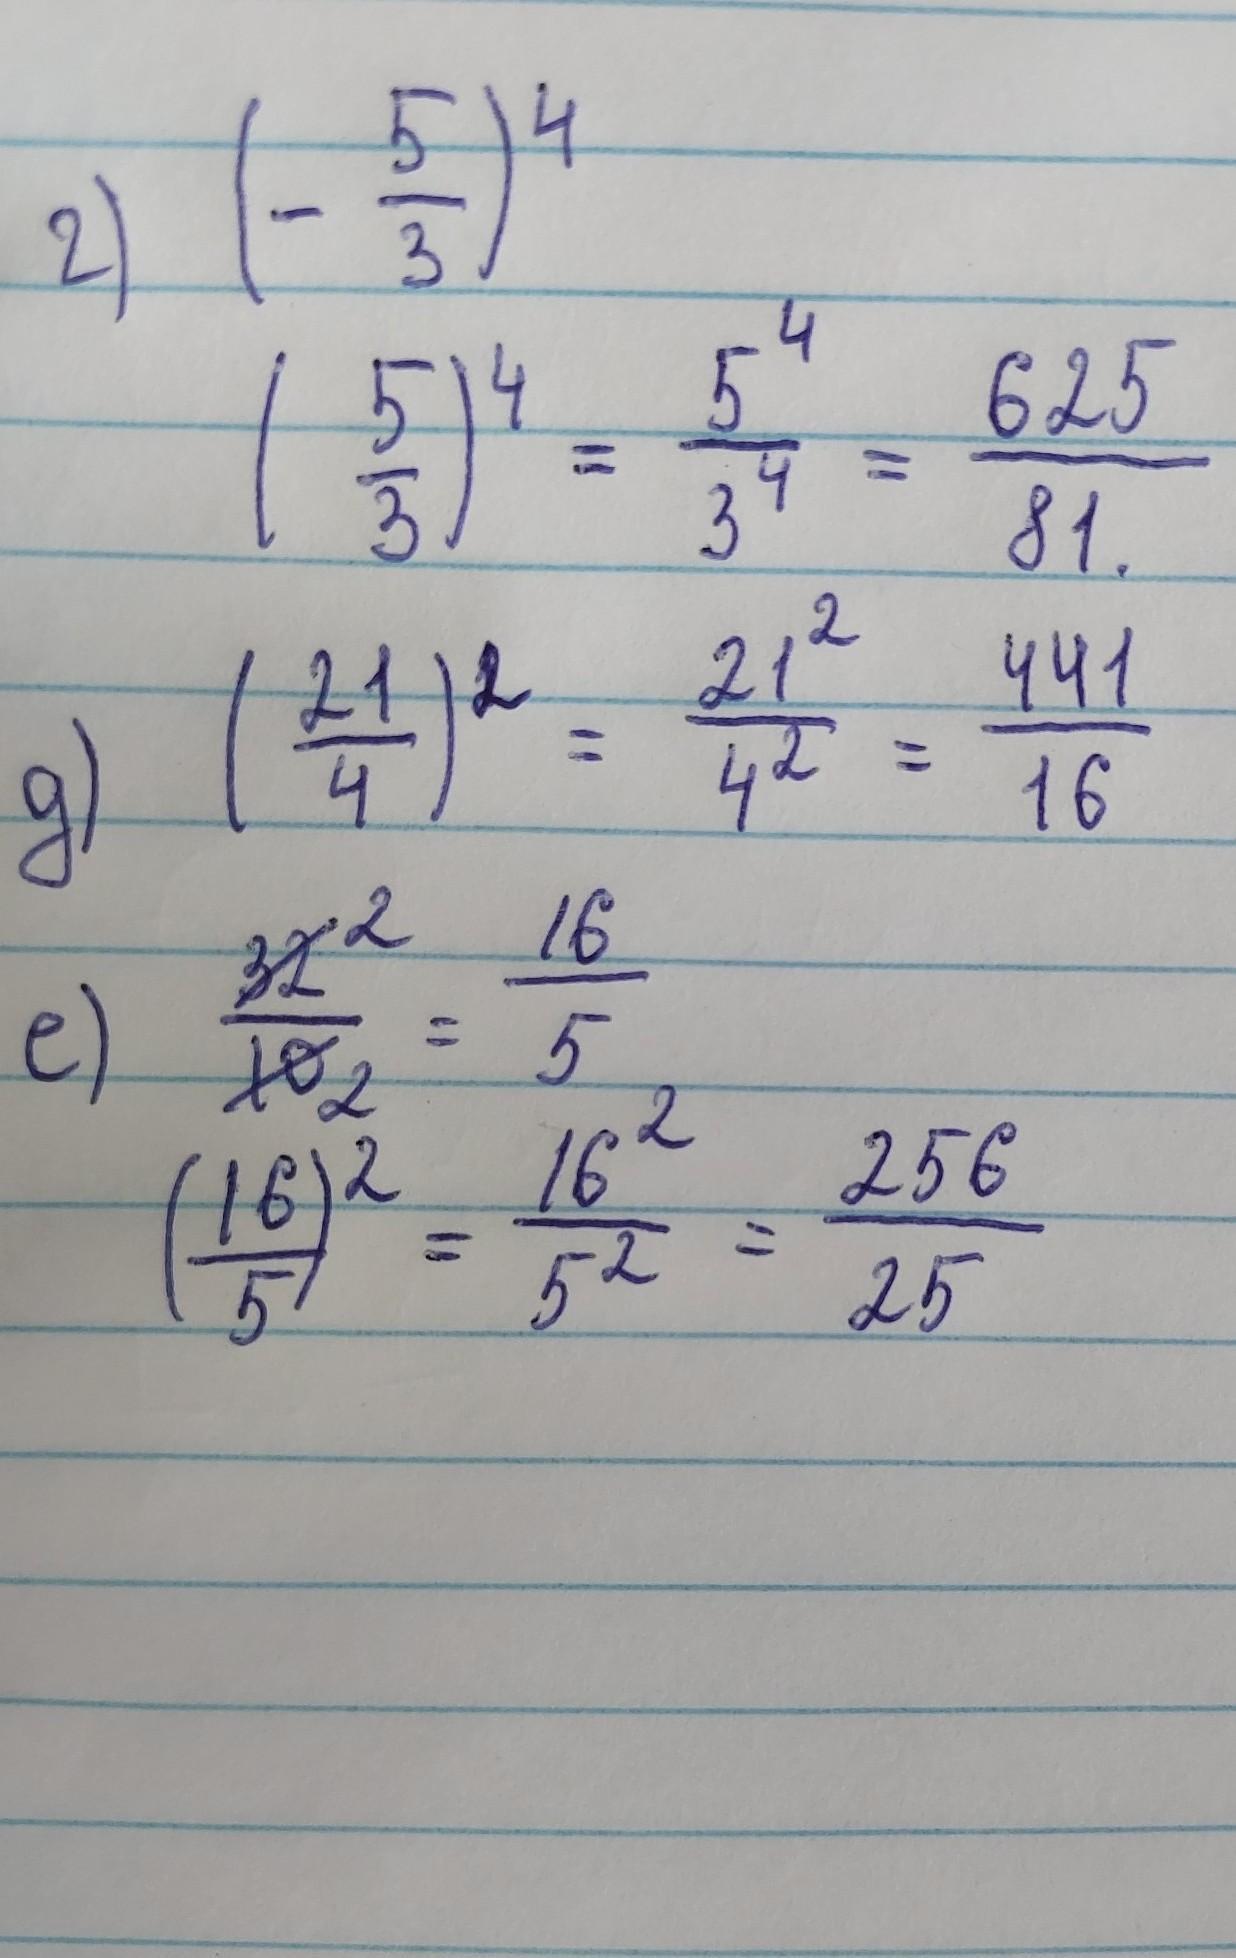 г) (- 5/3)^4
(5/3)^4 = 5^4/3^4 = 625/81.
д) (21/4)^2 = 21^2/4^2 = 441/16
е) 32^2/10_2 = 16/5
(16/5)^2 = 16^2/5^2 = 256/25